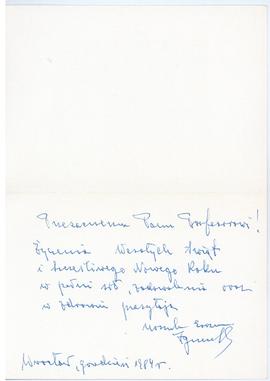 Przezacnemu Panu Profesorowi!
Życzenia Wesołych Świąt
i szczęśliwego Nowego Roku
w pełni sił, zadowolenia oraz
w zdrowiu przesyłają
Wrocław, grudzień 1984 r.